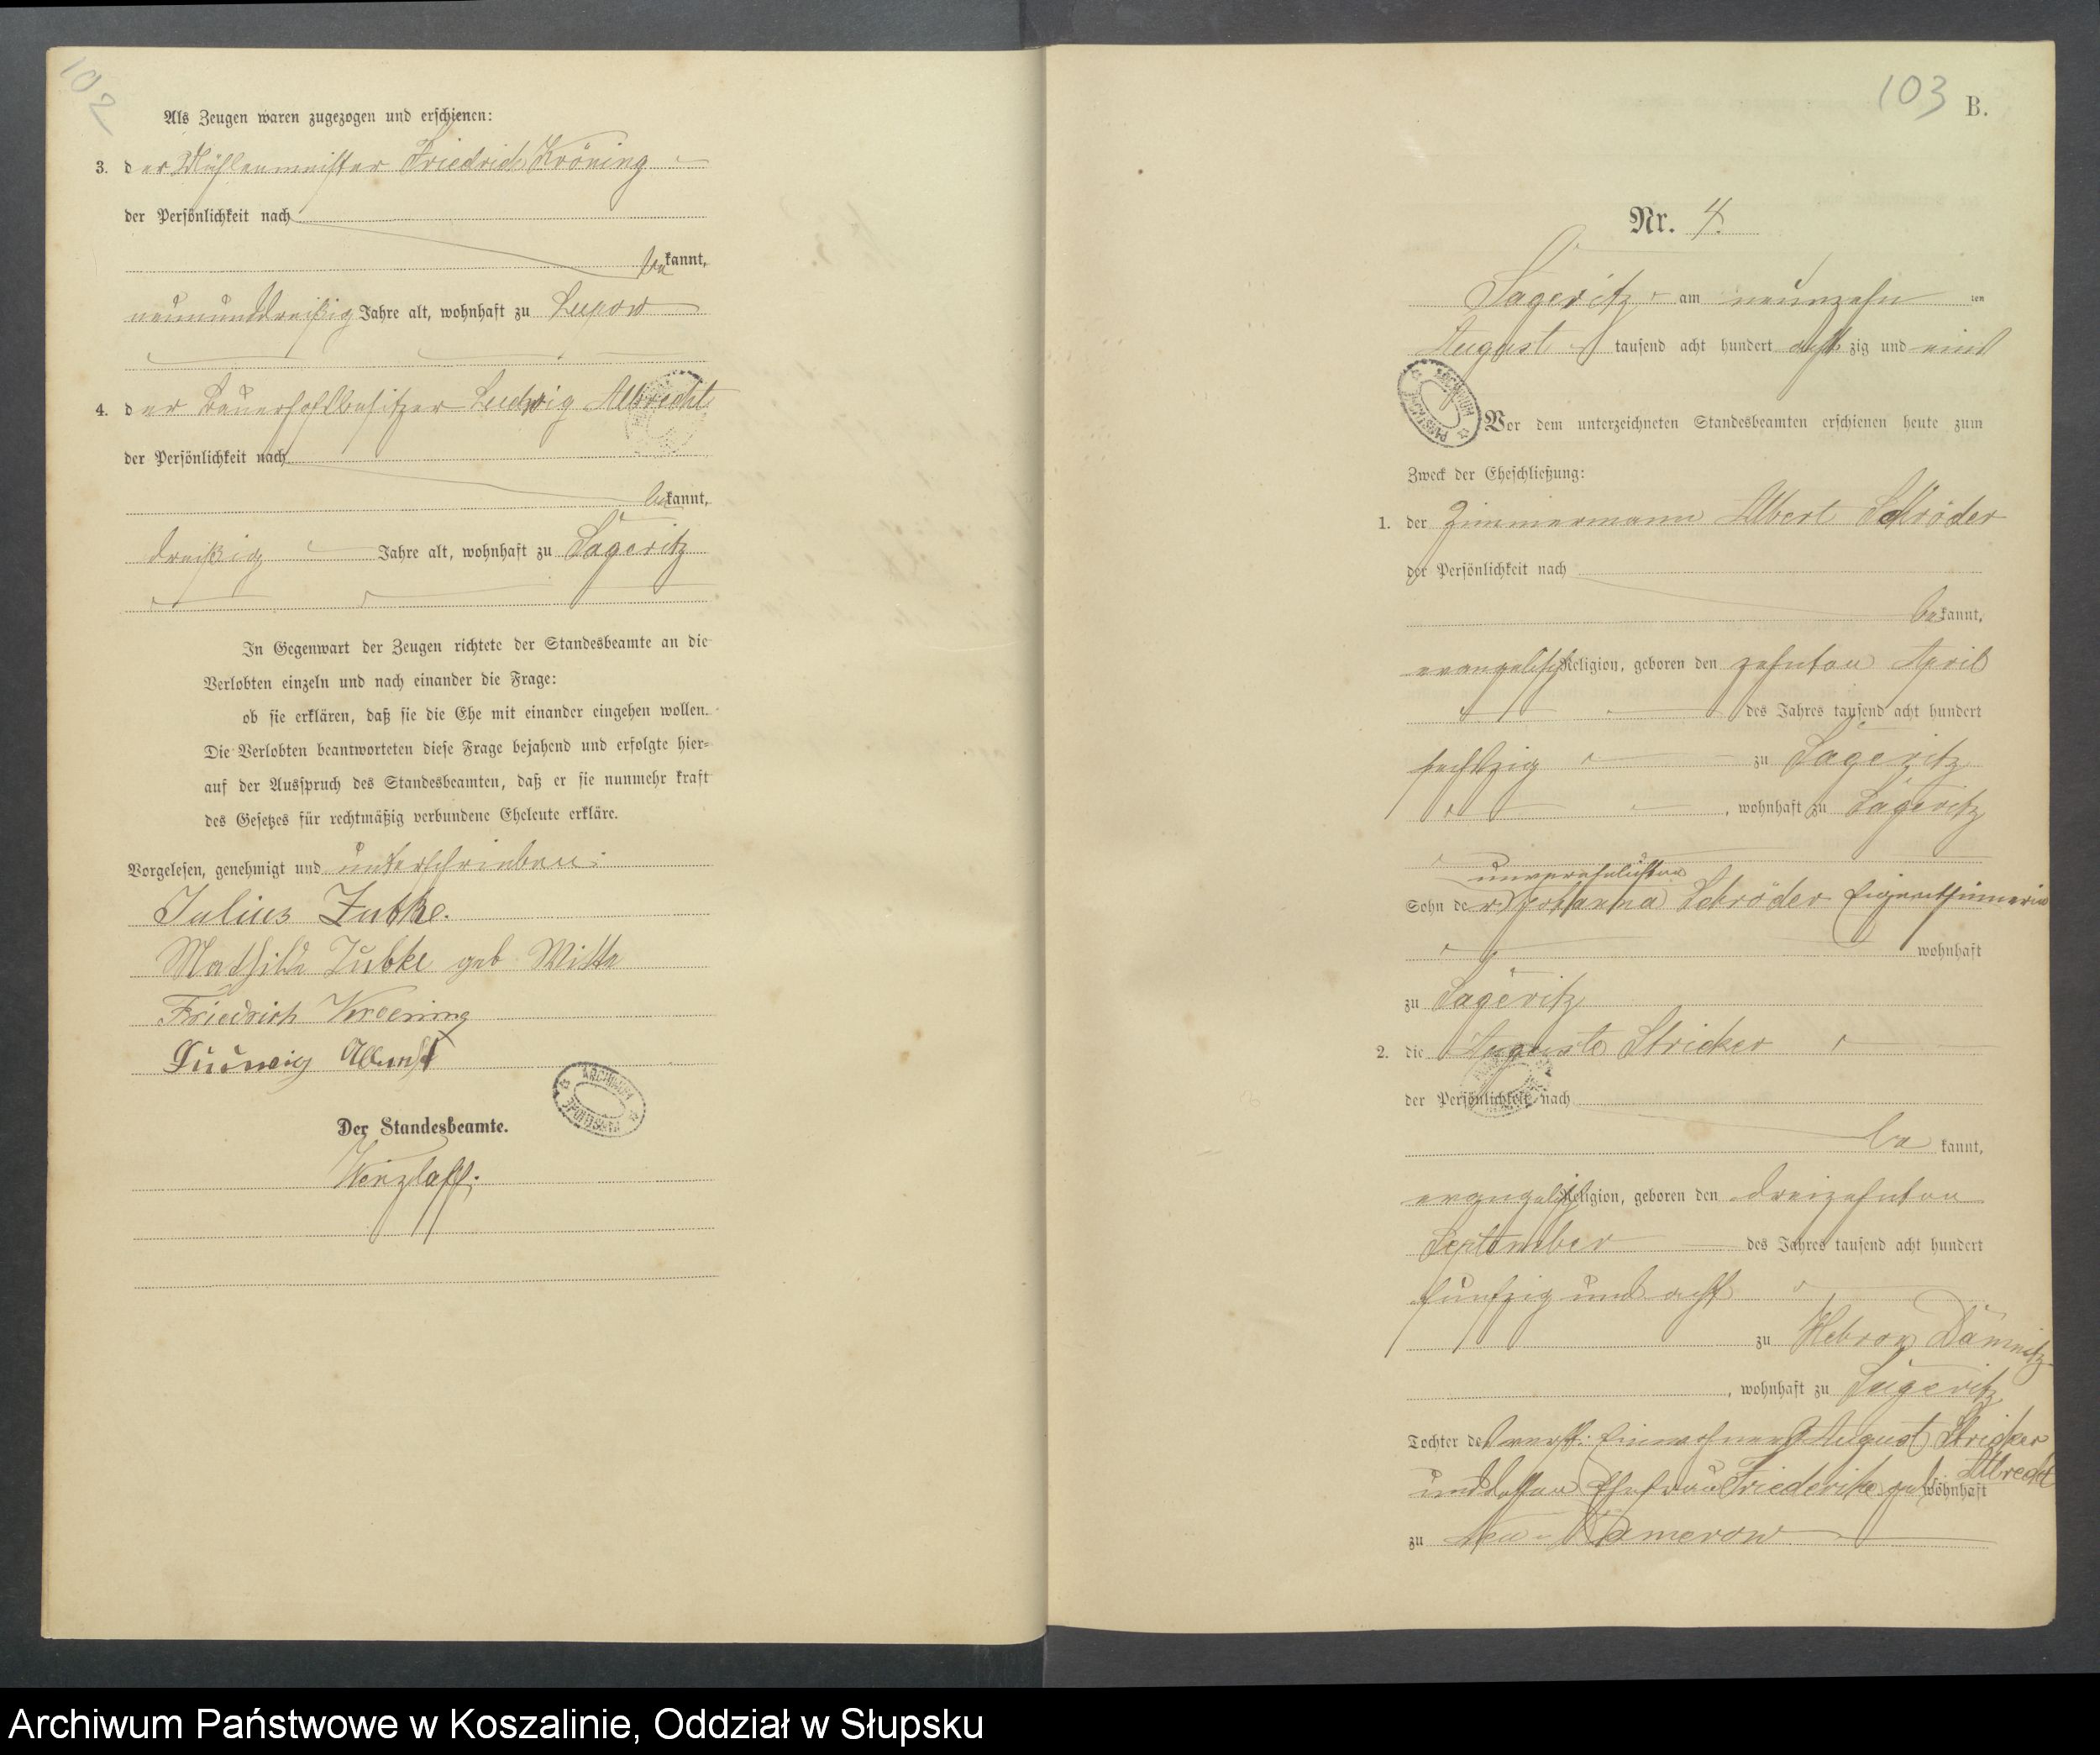 102
Als Zeugen waren zugezogen und erschienen:
3. der Mühlenmeister Friedrich Kröning
der Persönlichkeit nach
bekannt,
neununddreißig Jahre alt, wohnhaft zu Lupow
4. der Bauerhofbesitzer Ludwig Albrecht
der Persönlichkeit nach
bekannt,
dreißig Jahre alt, wohnhaft zu Sageritz
In Gegenwart der Zeugen richtete der Standesbeamte an die
Verlobten einzeln und nach einander die Frage:
ob sie erklären, daß sie die Ehe mit einander eingehen wollen.
Die Verlobten beantworteten diese Frage bejahend und erfolgte hier=
auf der Ausspruch des Standesbeamten, daß er sie nunmehr kraft
des Gesetzes für rechtmäßig verbundene Eheleute erkläre.
Vorgelesen, genehmigt und unterschrieben:
Julius Jubke.
Mathilde Jubke geb Witte
Friedrich Kroening
Ludwig Albrecht
ARCHIWUM PAŃSTWOWE
Der Standesbeamte.
Wenzlaff.
103
B.
Nr. 4.
Sageritz am neunzehn ten
August tausend acht hundert achtzig und eins
ARCHIWUM PAŃSTWOWE
Vor dem unterzeichneten Standesbeamten erschienen heute zum
Zweck der Eheschließung:
1. der Zimmermann Albert Schröder
der Persönlichkeit nach
bekannt,
evangelisch Religion, geboren den zehnten April
des Jahres tausend acht hundert
sechszig zu Sageritz
, wohnhaft zu Sageritz
unverehelichten
Sohn der Johanna Schröder Eigenthümerin
wohnhaft
zu Sageritz
2. die Auguste Stricker
der Persönlichkeit nach
bekannt,
evangelisch Religion, geboren den dreizehnten
September des Jahres tausend acht hundert
fünfzig und acht
zu Hebron Damnitz
, wohnhaft zu Sageritz
Tochter des verst. Einwohners August Stricker
und dessen Ehefrau Friederike geb Albrecht wohnhaft
zu Neu Damerow
Archiwum Państwowe w Koszalinie, Oddział w Słupsku